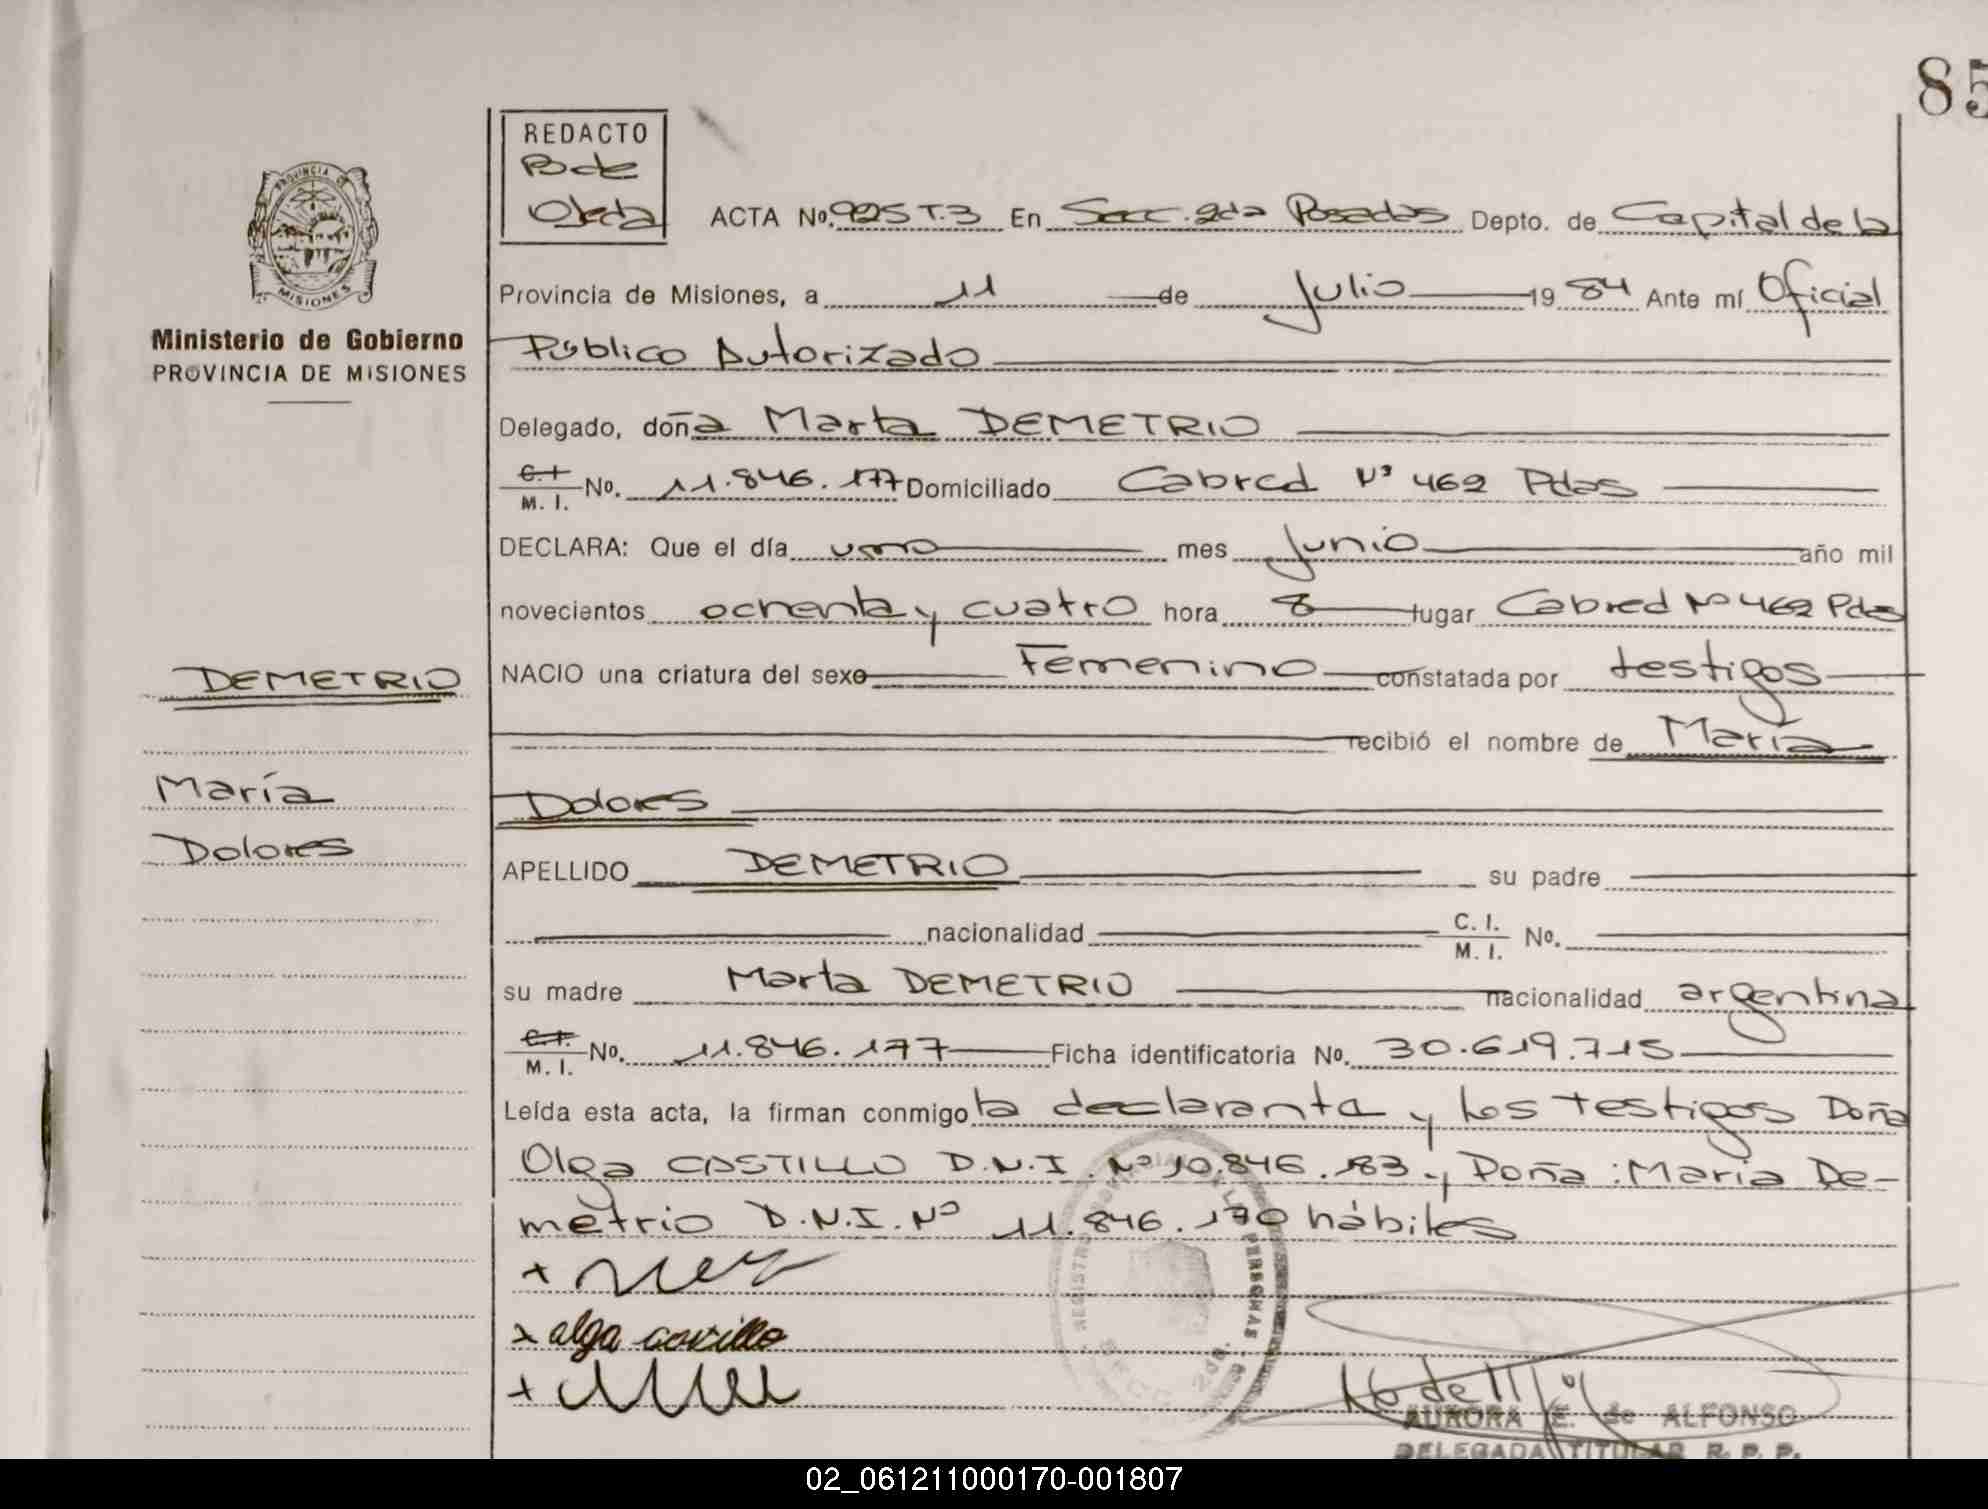 85
REDACTO
B de
Ojeda
PROVINCIA DE
MISIONES
Ministerio de Gobierno
PROVINCIA DE MISIONES
ACTA No. 925 T.3 En Secc. 2da Posadas Depto. de Capital de la
Provincia de Misiones, a 11 de Julio 19 84 Ante mí Oficial
Público Autorizado
Delegado, doña Marta DEMETRIO
C.I
M. I. No. 11.846.177 Domiciliado Cabred Nº 462 Pdas
DECLARA: Que el día uno mes Junio año mil
novecientos ochenta y cuatro hora 8 lugar Cabred Nº 462 Pdas
NACIO una criatura del sexo Femenino constatada por testigos
recibió el nombre de María
Dolores
APELLIDO DEMETRIO su padre
nacionalidad C. I.
M. I. No.
su madre Marta DEMETRIO nacionalidad argentina
C.I.
M. I. No. 11.846.177 Ficha identificatoria No. 30.619.715
Leída esta acta, la firman conmigo la declaranta y los testigos Doña
Olga CASTILLO D.N.I. Nº 10.846.183 y Doña: María De-
metrio D.N.I. Nº 11.846.170 hábiles
DEMETRIO
María
Dolores
+
x olga
+
REGISTRO DE LAS PERSONAS
SECC. 2da.
AURORA E. de ALFONSO
DELEGADA TITULAR R. P. P.
02_061211000170-001807